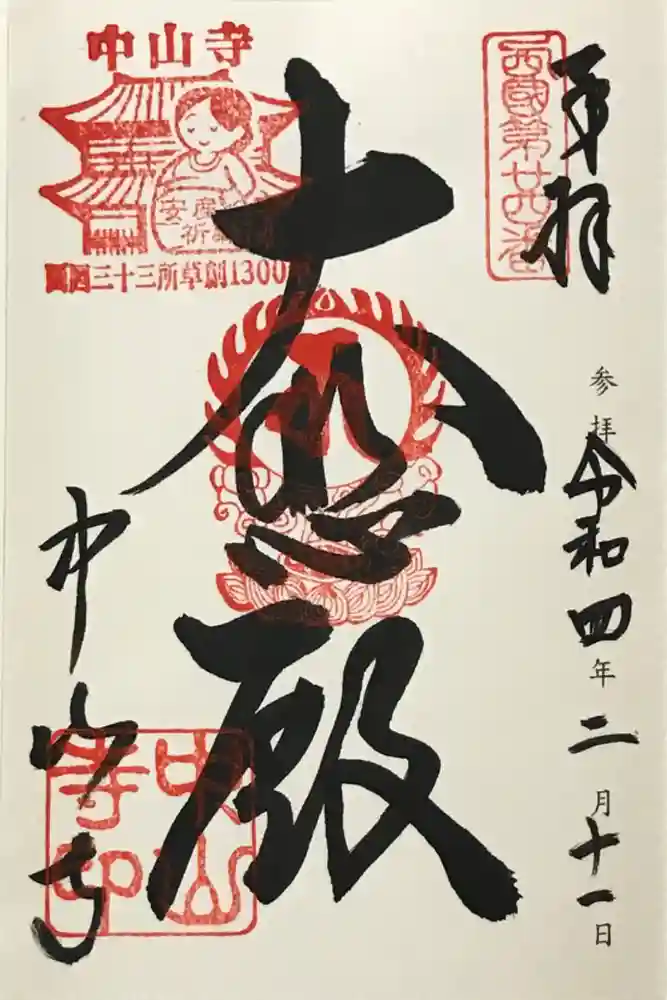 奉拝
西國第廿四番
参拝
令和四年二月十一日
大悲殿
中山寺
安産
祈
西国三十三所草創1300年
中山寺
中山寺印